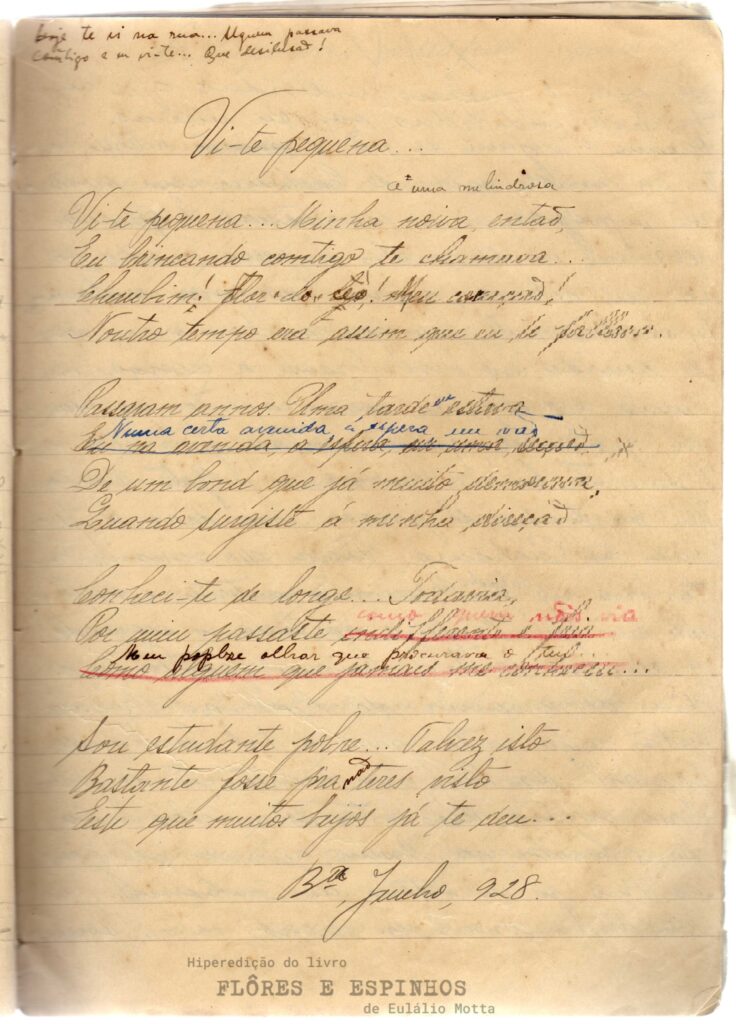 Hoje te vi na rua... Alguem passava
comtigo e eu vi-te... Que desilusaõ!
Vi-te pequena...
e uma melindrosa
Vi-te pequena... Minha noiva, entaõ,
Eu brincando comtigo te chamava...
Cherubim! Flor do céo! Meu coraçaõ!
Noutro tempo era assim que eu te
Passaram annos. Uma tarde eu estava
Numa certa avenida, á espera em vaõ
Eu na avenida, a espera,
De um bond que já muito demorava,
Quando surgiste á minha direcçaõ
Conheci-te de longe... Todavia,
como alguem que não via
Por mim passaste
Meu pobre olhar que procurava o teu...
Como alguem que jamais me conheceu...
Sou estudante pobre... Talvez isto
Bastante fosse pra naõ teres visto
Este que muitos bejos já te deu...
Bª, Junho, 928.
Hiperedição do livro
FLÔRES E ESPINHOS
de Eulálio Motta